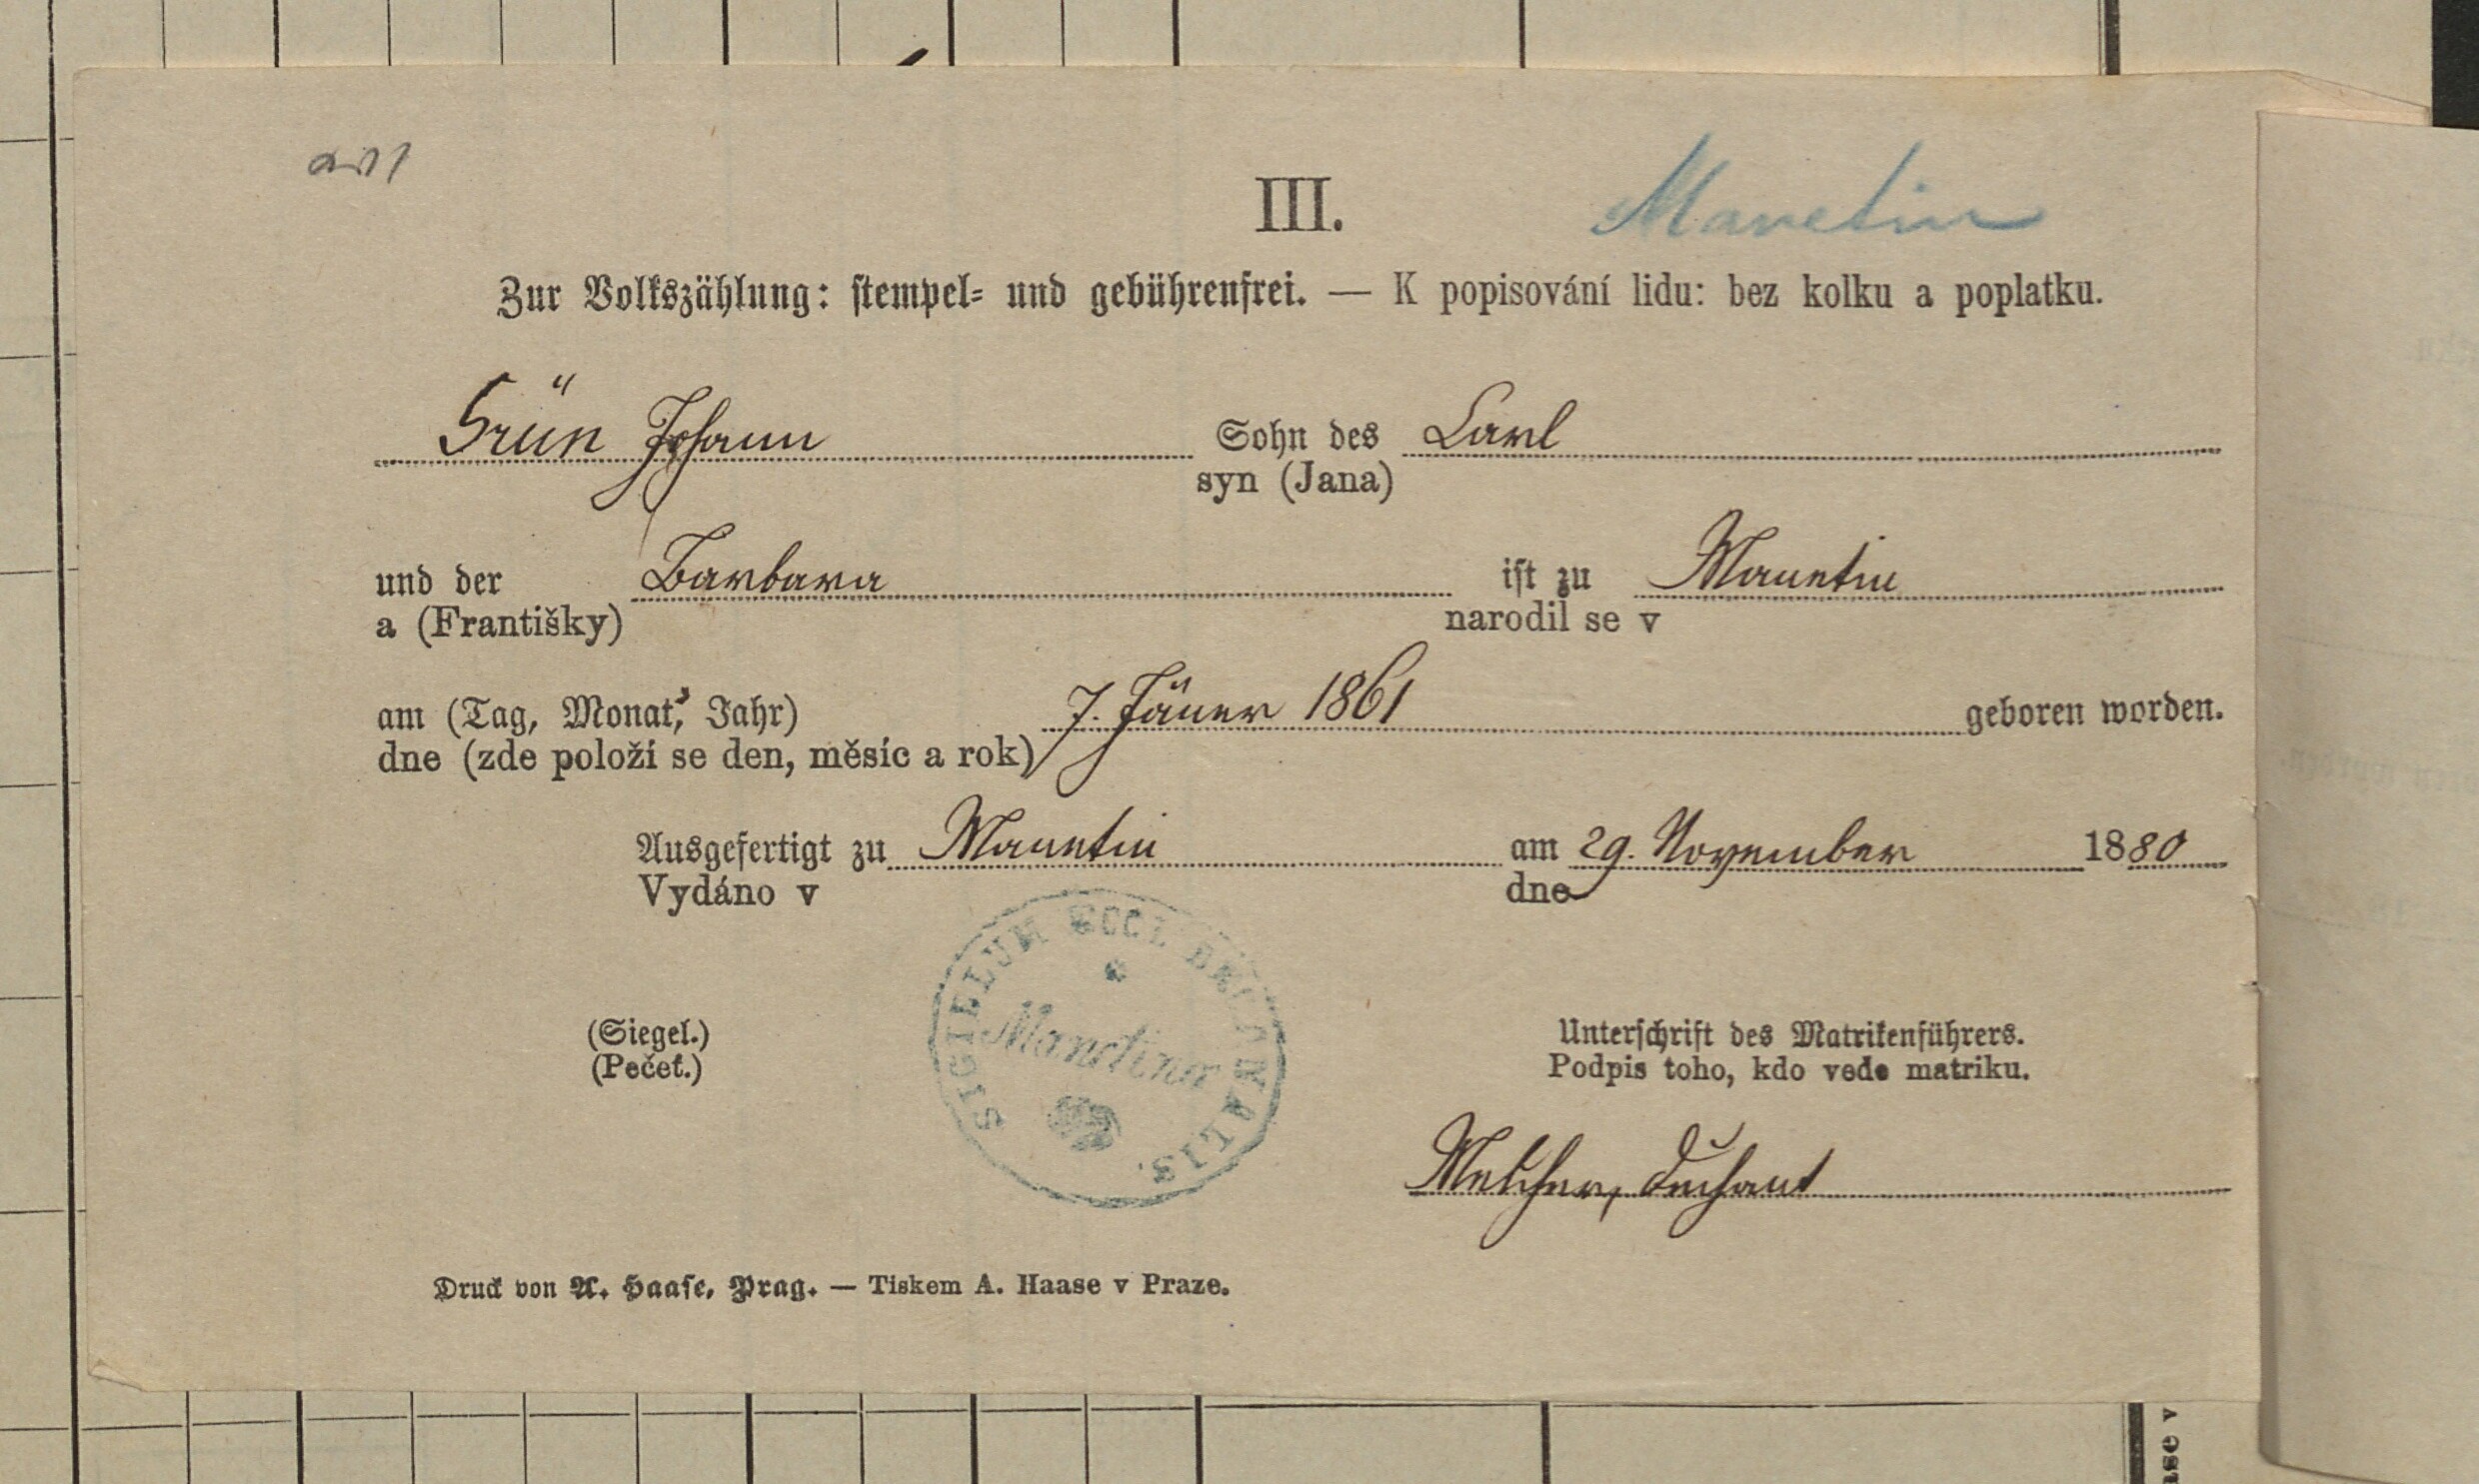 III.
Manetin
Zur Volkszählung: stempel- und gebührenfrei. — K popisování lidu: bez kolku a poplatku.
Grün Johann Sohn des Carl
syn (Jana)
und der Barbara ist zu Manetin
a (Františky) narodil se v
am (Tag, Monat, Jahr) 7. Jäner 1861 geboren worden.
dne (zde položí se den, měsíc a rok)
Ausgefertigt zu Manetin am 29. November 1880
Vydáno v dne
SIGIELUM ECCL
Manetina
(Siegel.) Unterschrift des Matrikenführers.
(Pečeť.) Podpis toho, kdo vede matriku.
Melcher, Dechant
Druck von A. Haase, Prag. — Tiskem A. Haase v Praze.